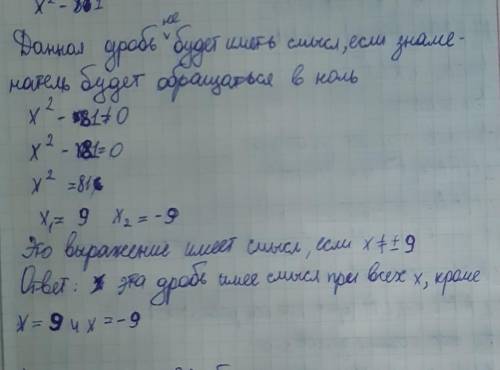 x² - 81
Данная дробь не будет иметь смысл, если знаме-
натель будет обращаться в ноль
x² - 81≠0
x² - 81=0
x² =81
x₁= 9   x₂ = -9
Это выражение имеет смысл, если x ≠ ± 9
Ответ: эта дробь имее смысл при всех x, кроме
x = 9 и x = -9